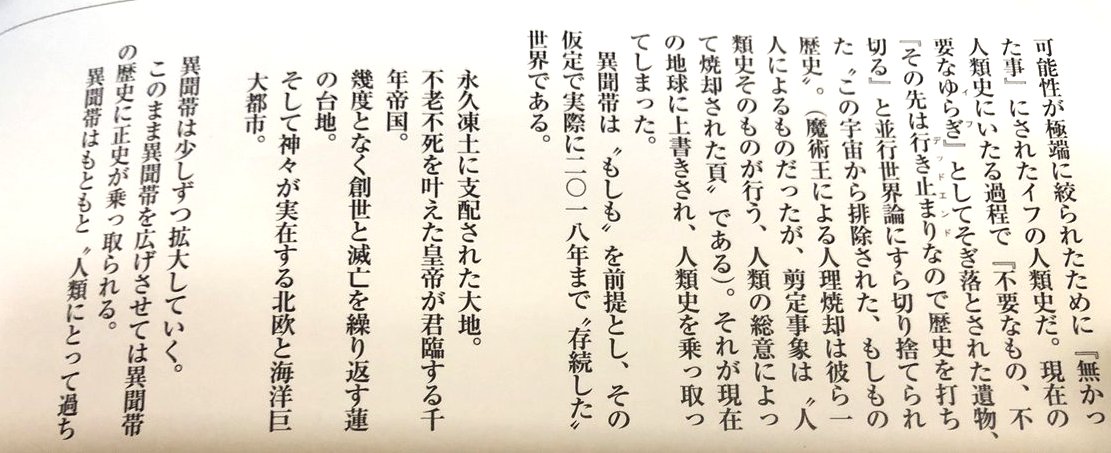 可能性が極端に絞られたために『無かっ
た事』にされたイフの人類史だ。現在の
人類史にいたる過程で『不要なもの、不
要なゆらぎ』としてそぎ落とされた遺物、
『その先は行き止まりなので歴史を打ち
切る』と並行世界論にすら切り捨てられ
た〝この宇宙から排除された、もしもの
歴史〟。（魔術王による人理焼却は彼ら一
人によるものだったが、剪定事象は〝人
類史そのものが行う、人類の総意によっ
て焼却された頁〟である）。それが現在
の地球に上書きされ、人類史を乗っ取っ
てしまった。
異聞帯は〝もしも〟を前提とし、その
仮定で実際に二〇一八年まで〝存続した〟
世界である。
永久凍土に支配された大地。
不老不死を叶えた皇帝が君臨する千
年帝国。
幾度となく創世と滅亡を繰り返す蓮
の台地。
そして神々が実在する北欧と海洋巨
大都市。
異聞帯は少しずつ拡大していく。
このまま異聞帯を広げさせては異聞帯
の歴史に正史が乗っ取られる。
異聞帯はもともと〝人類にとって過ち